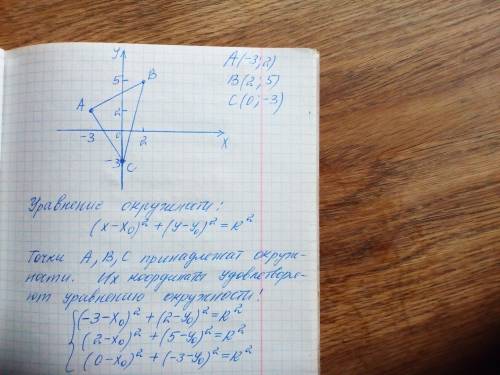 y
A(-3; 2)
B(2; 5)
C(0; -3)
5
B
A
2
-3
0
2
x
-3
C
Уравнение окружности:
(x-x₀)²+(y-y₀)²=R²
Точки A, B, C принадлежат окруж-
ности. Их координаты удовлетворя-
ют уравнению окружности:
(-3-x₀)²+(2-y₀)²=R²
(2-x₀)²+(5-y₀)²=R²
(0-x₀)²+(-3-y₀)²=R²